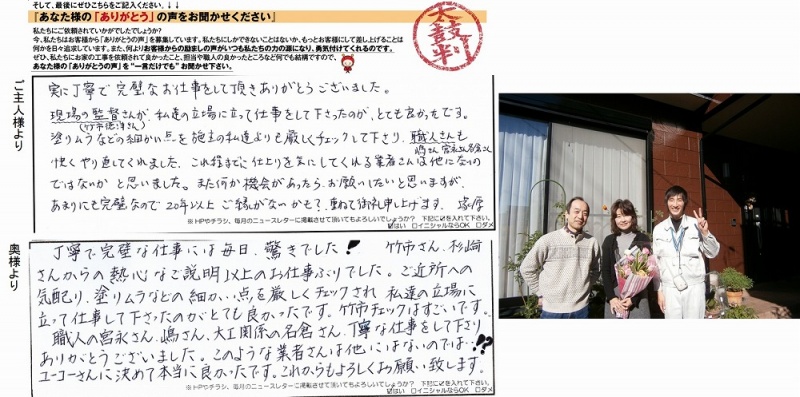 そして、最後にぜひこちらをご記入ください。↓↓
「あなた様の「ありがとう」の声をお聞かせください」
私たちにご依頼されていかがでしたでしょうか？
今、私たちはお客様から「ありがとうの声」を募集しています。私たちにしかできないことはないか、もっとお客様にして差し上げることは
何かを日々追求しています。また、何よりお客様からの励ましの声がいつも私たちの力の源になり、勇気付けてくれるのです。
ぜひ、私たちにお家の工事を依頼されて良かったこと、担当や職人の良かったところなど何でも結構ですので、
あなた様の「ありがとうの声」を“一言だけでも”お聞かせ下さい。
太鼓判
ご主人様より
実に丁寧で完璧なお仕事をして頂きありがとうございました。
現場の監督さんが、私達の立場に立って仕事をして下さったのが、とても良かったです。
(竹市
塗りムラなどの細かい点を施主の私達よりも厳しくチェックして下さり、職人さんも
嶋さん 宮永さん 名倉さん
快くやり直してくれました。これ程までに仕上りを気にしてくれる業者さんは他にないの
ではないかと思いました。また何か機会があったら、お願いしたいと思いますが、
あまりにも完璧なので20年以上ご縁がないかも？重ねて御礼申し上げます。塚原
※HPやチラシ、毎月のニュースレターに掲載させて頂いてもよろしいでしょうか？ 下記に☑を入れて下さい。
☑はい □イニシャルならOK □ダメ
奥様より
丁寧で完璧な仕事には毎日、驚きでした！ 竹市さん、杉崎
さんからの熱心なご説明以上のお仕事ぶりでした。ご近所への
気配り、塗りムラなどの細かい点を厳しくチェックされ 私達の立場に
立って仕事して下さったのがとても良かったです。竹市チェックはすごいです。
職人の宮永さん、嶋さん、大工関係の名倉さん、丁寧な仕事をして下さり
ありがとうございました。このような業者さんは他にはないのでは…!?
ユーコーさんに決めて本当に良かったです。これからもよろしくお願い致します。
※HPやチラシ、毎月のニュースレターに掲載させて頂いてもよろしいでしょうか？ 下記に☑を入れて下さい。
☑はい □イニシャルならOK □ダメ